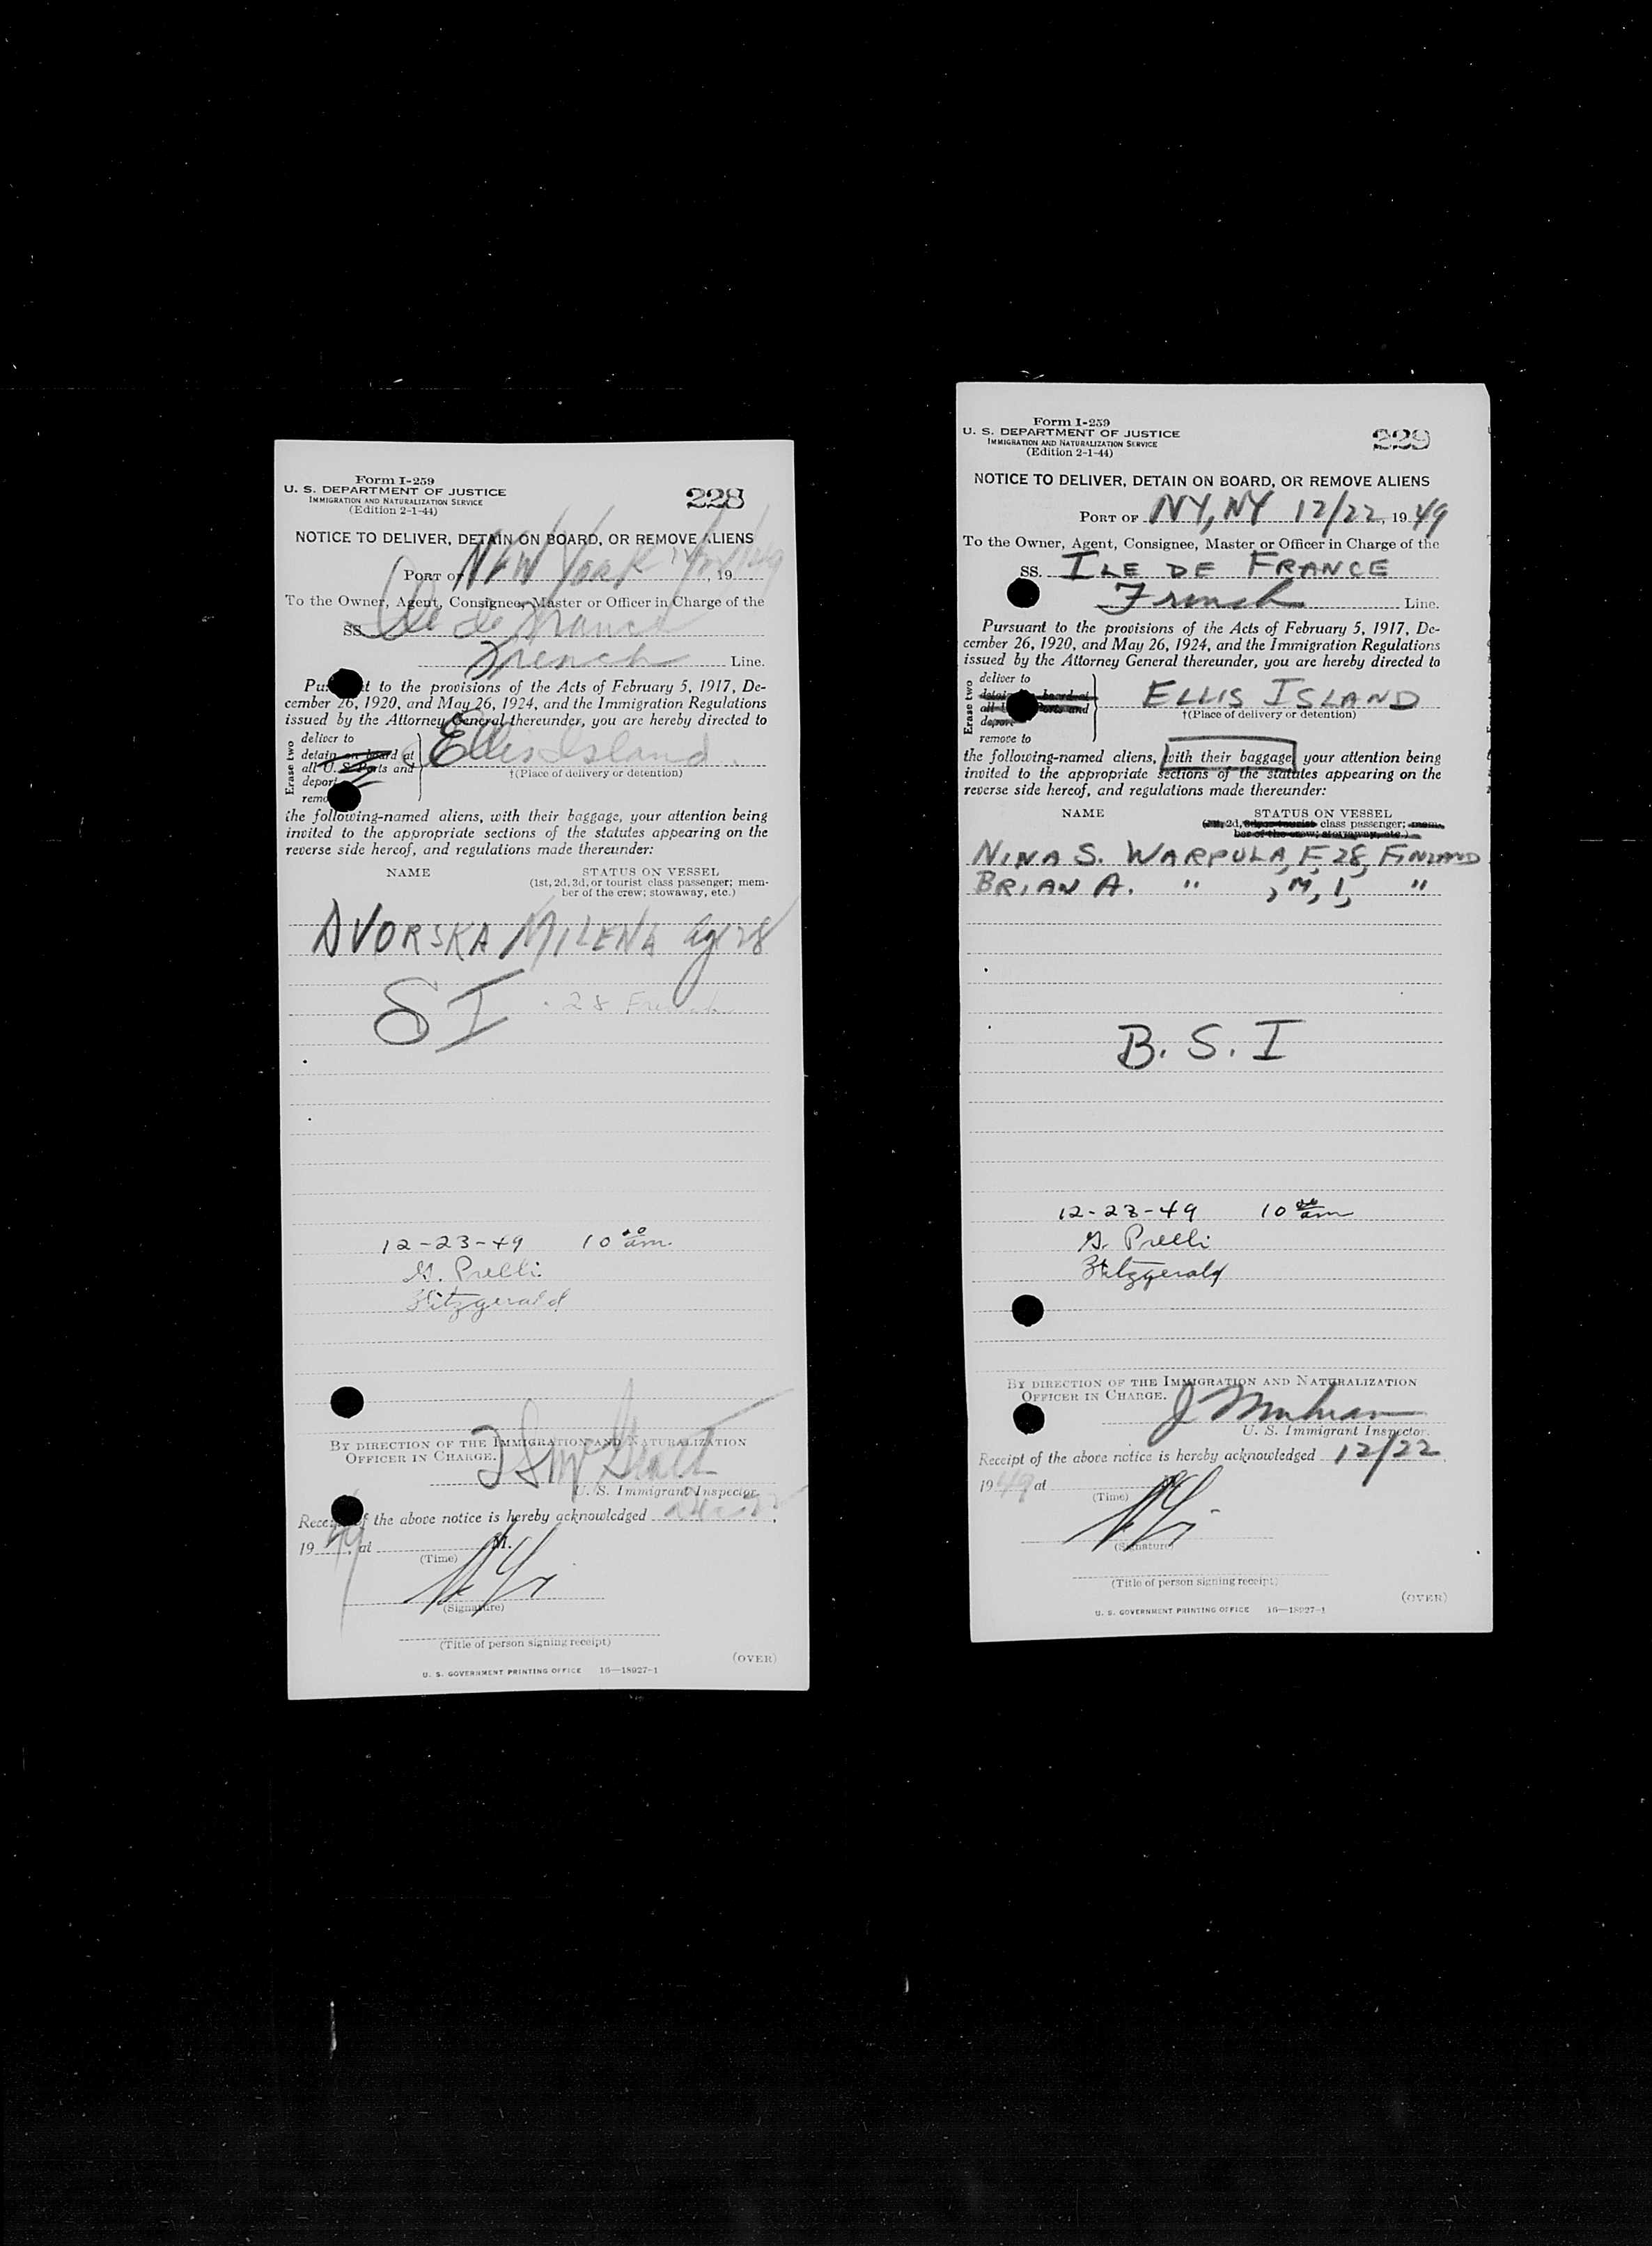 Form I-259
U. S. DEPARTMENT OF JUSTICE
IMMIGRATION AND NATURALIZATION SERVICE
(Edition 2-1-44)
228
NOTICE TO DELIVER, DETAIN ON BOARD, OR REMOVE ALIENS
PORT OF NEW YORK 12/22/49, 19
To the Owner, Agent, Consignee, Master or Officer in Charge of the
SS. Ile de France
French Line.
to the provisions of the Acts of February 5, 1917, De-
cember 26, 1920, and May 26, 1924, and the Immigration Regulations
issued by the Attorney General thereunder, you are hereby directed to
Erase two
deliver to
detain on board at
all U. S. Ports and
deport
Ellis Island
†(Place of delivery or detention)
the following-named aliens, with their baggage, your attention being
invited to the appropriate sections of the statutes appearing on the
reverse side hereof, and regulations made thereunder:
NAME STATUS ON VESSEL
(1st, 2d, 3d, or tourist class passenger; mem-
ber of the crew; stowaway, etc.)
DVORSKA MILENA age 28
SI 28 French
12-23-49 10 00 am.
G. Prelli
Fitzgerald
BY DIRECTION OF THE IMMIGRATION AND NATURALIZATION
OFFICER IN CHARGE.
U. S. Immigrant Inspector.
of the above notice is hereby acknowledged
19 49, at M.
(Time)
(Signature)
(Title of person signing receipt)
(OVER)
U. S. GOVERNMENT PRINTING OFFICE 16—18927-1
Form I-259
U. S. DEPARTMENT OF JUSTICE
IMMIGRATION AND NATURALIZATION SERVICE
(Edition 2-1-44)
229
NOTICE TO DELIVER, DETAIN ON BOARD, OR REMOVE ALIENS
PORT OF NY, NY 12/22, 19 49
To the Owner, Agent, Consignee, Master or Officer in Charge of the
SS. ILE DE FRANCE
French Line.
Pursuant to the provisions of the Acts of February 5, 1917, De-
cember 26, 1920, and May 26, 1924, and the Immigration Regulations
issued by the Attorney General thereunder, you are hereby directed to
Erase two
deliver to
deport
remove to
ELLIS ISLAND
†(Place of delivery or detention)
the following-named aliens, with their baggage, your attention being
invited to the appropriate sections of the statutes appearing on the
reverse side hereof, and regulations made thereunder:
NAME STATUS ON VESSEL
(1st, 2d, 3d, or tourist class passenger; mem-
ber of the crew; stowaway, etc.)
NINA S. WARPULA, F, 28, FINLAND
BRIAN A. " , M, 1, "
B. S. I
12-23-49 10 00 am
G. Prelli
Fitzgerald
BY DIRECTION OF THE IMMIGRATION AND NATURALIZATION
OFFICER IN CHARGE.
U. S. Immigrant Inspector.
Receipt of the above notice is hereby acknowledged 12/22,
19 49 at
(Time)
(Signature)
(Title of person signing receipt)
(OVER)
U. S. GOVERNMENT PRINTING OFFICE 16—18927-1